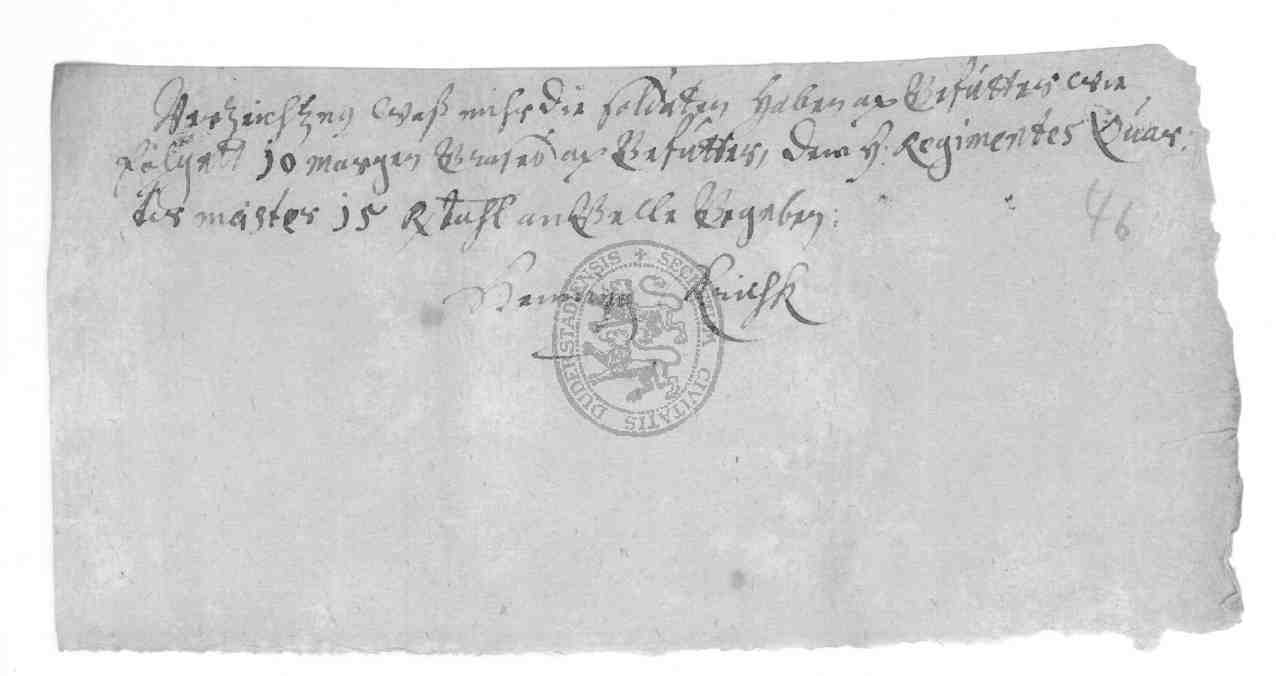 Vertzeichnng waß mihr die soldaten haben ap Gefuttert wie
folgett 10 morgen Grases ap Gefuttert, dem H. Regimentes Quar:
tir meister 15 R tahl an Gelle Gegeben:
Henning
46
SECRETUM CIVITATIS DUDERSTADENSIS